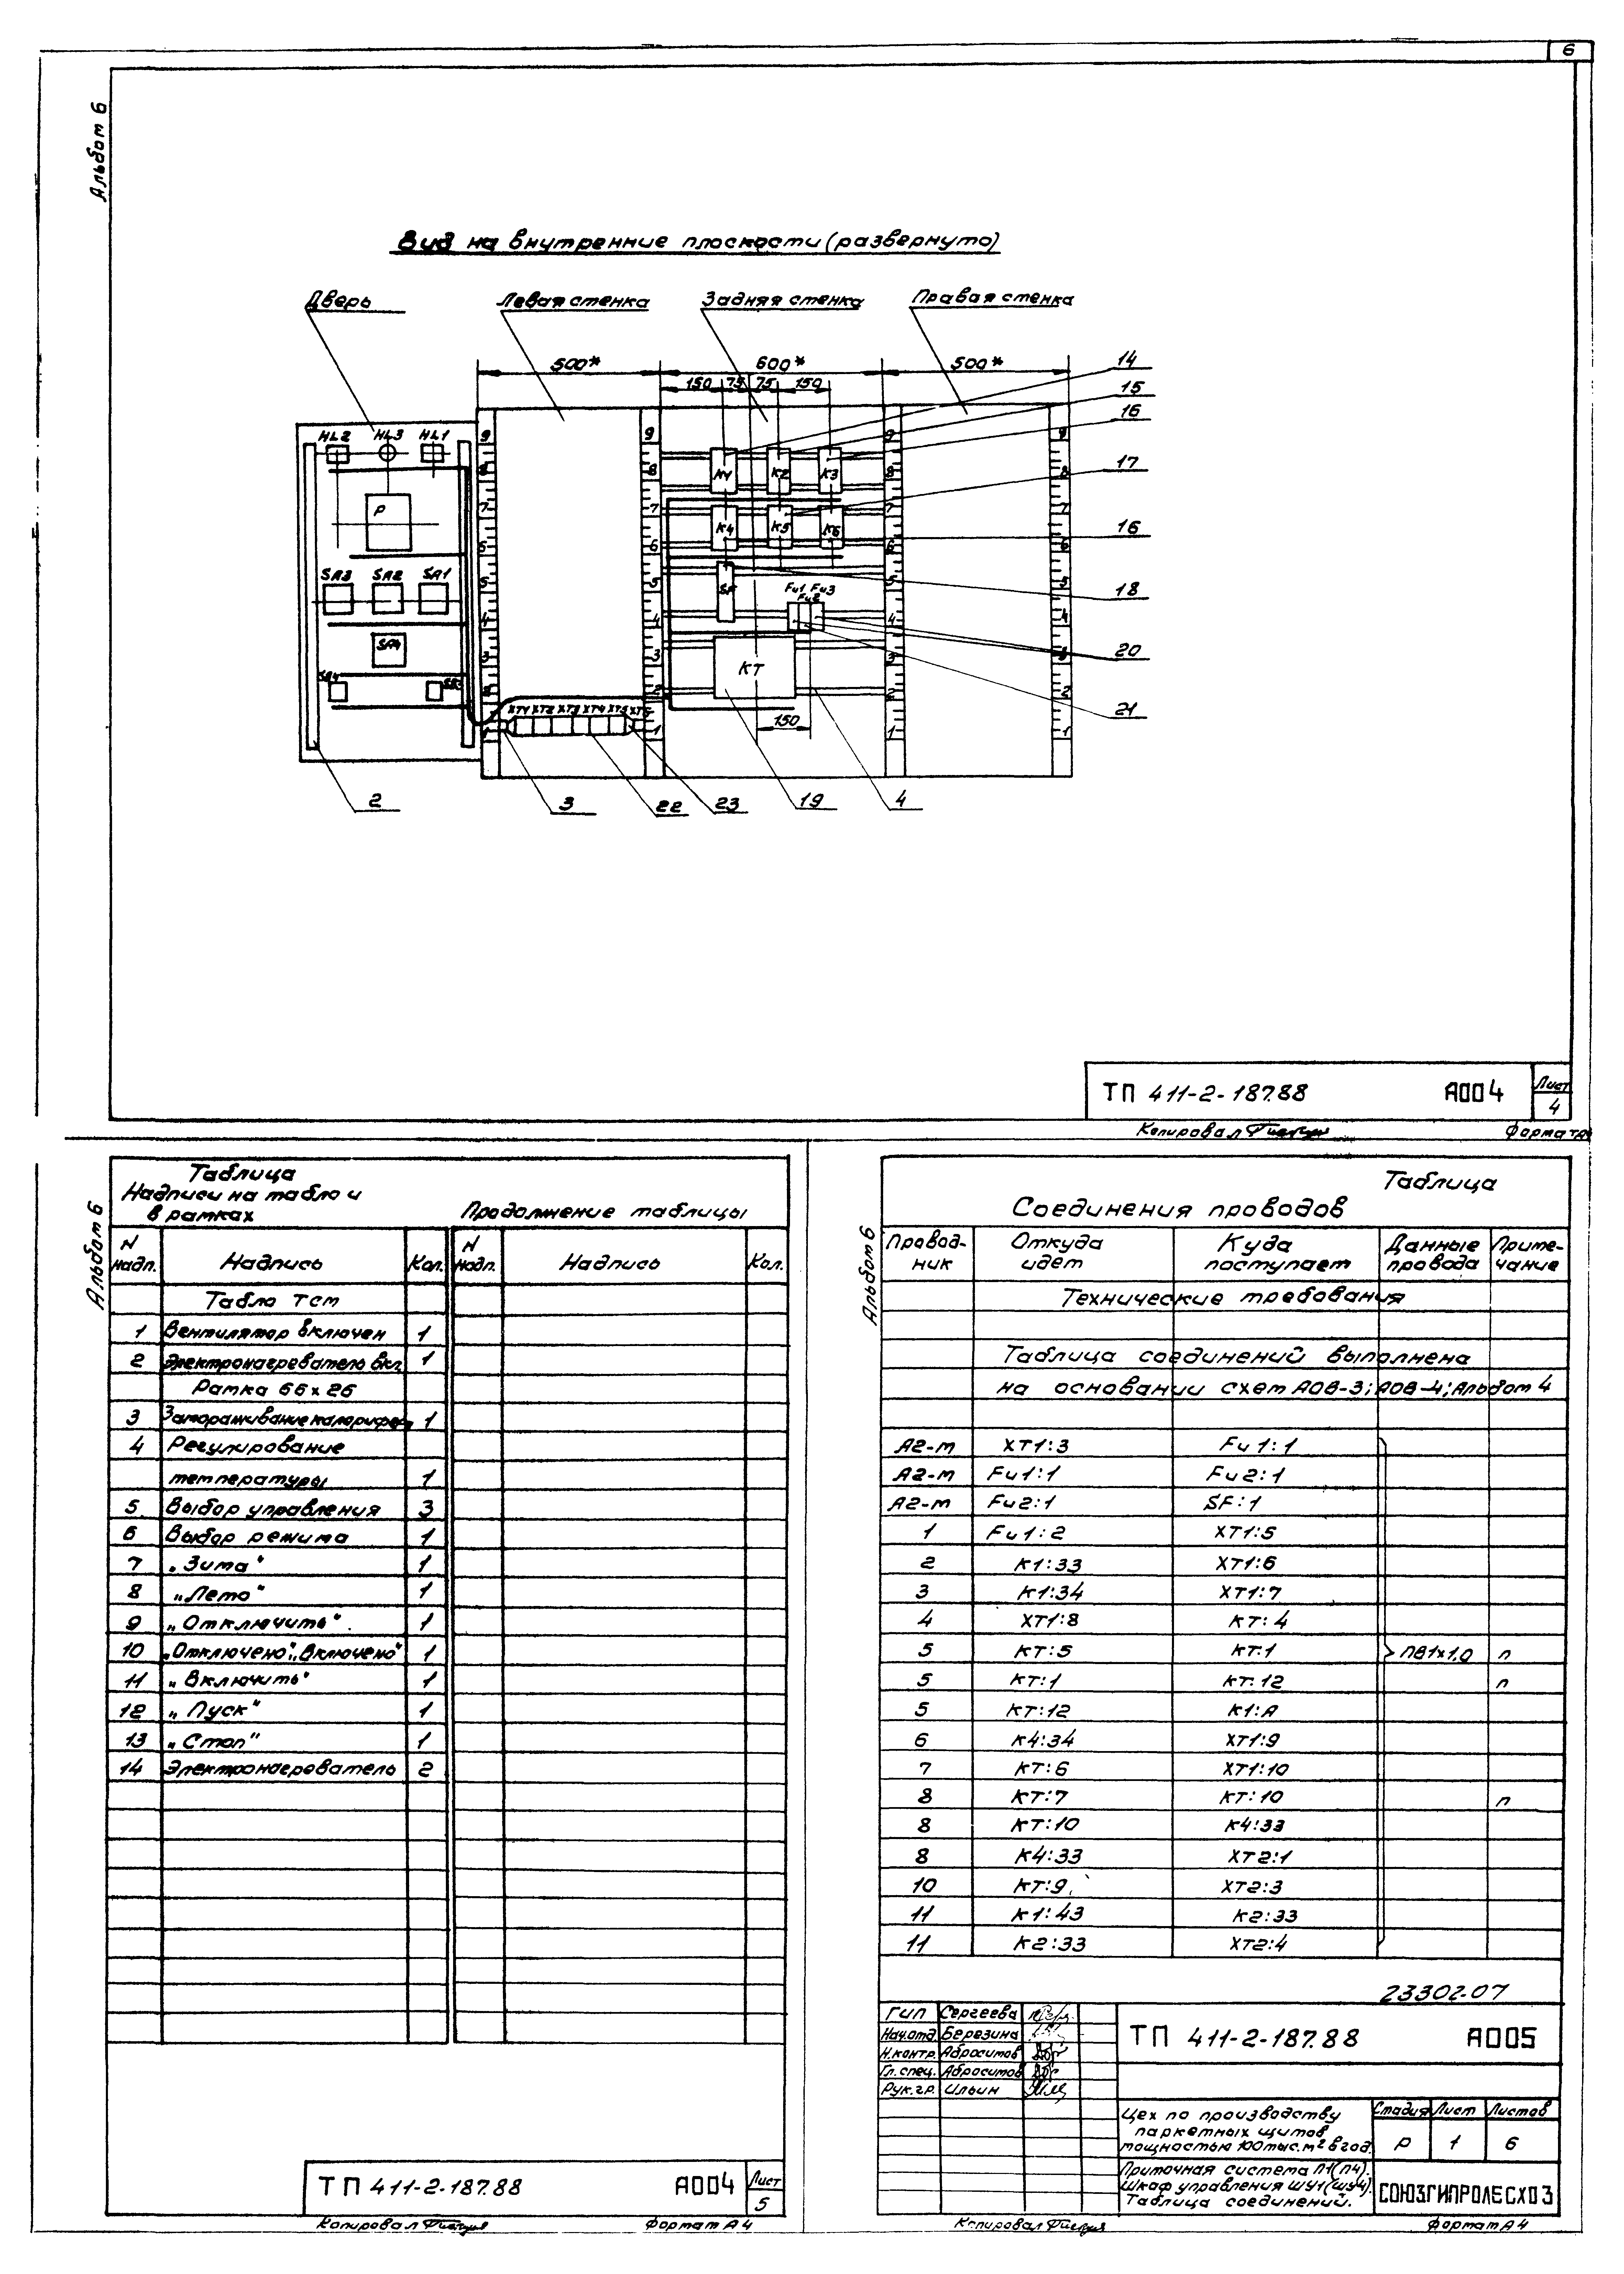 6
Альбом 6
Вид на внутренние плоскости (развернуто)
Дверь
Левая стенка
Задняя стенка
Правая стенка
500*
600*
500*
150
75
75
150
14
15
16
17
16
18
20
21
HL2
HL3
HL1
P
SA3
SA2
SA1
SA4
9
8
7
6
5
4
3
2
1
K1
K2
K3
K4
K5
K6
SF
Fu1
Fu3
Fu2
KT
XT1 XT2 XT3 XT4 XT5 XT6
150
2
3
22
23
19
4
ТП 411-2-187.88 А004
Лист
4
Копировал
Формат А4
Альбом 6
Таблица
Надписи на табло и
в рамках
Продолжение таблицы
N надп. Надпись Кол. N надп. Надпись Кол.
Табло ТСМ
1 Вентилятор включен 1
2 Электронагреватель вкл. 1
Рамка 66х26
3 Замораживание калорифера 1
4 Регулирование
температуры 1
5 Выбор управления 3
6 Выбор режима 1
7 „Зима" 1
8 „Лето" 1
9 „Отключить" 1
10 „Отключено", „Включено" 1
11 „Включить" 1
12 „Пуск" 1
13 „Стоп" 1
14 Электронагреватель 2
ТП 411-2-187.88 А004
Лист
5
Копировал
Формат А4
Альбом 6
Таблица
Соединения проводов
Провод-ник Откуда идет Куда поступает Данные провода Приме-чание
Технические требования
Таблица соединений выполнена
на основании схем АОВ-3; АОВ-4; Альбом 4
А2-м XT1:3 Fu1:1
А2-м Fu1:1 Fu2:1
А2-м Fu2:1 SF:1
1 Fu1:2 XT1:5
2 K1:33 XT1:6
3 K1:34 XT1:7
4 XT1:8 KT:4
5 KT:5 KT:1 ПВ1х1,0 п
5 KT:1 KT:12 п
5 KT:12 K1:А
6 K4:34 XT1:9
7 KT:6 XT1:10
8 KT:7 KT:10 п
8 KT:10 K4:33
8 K4:33 XT2:1
10 KT:9 XT2:3
11 K1:43 K2:33
11 K2:33 XT2:4
23302-07
ГИП Сергеева
Нач.отд. Березина
Н.контр. Абросимов
Гл.спец. Абросимов
Рук.гр. Ильин
ТП 411-2-187.88 А005
Цех по производству
паркетных щитов
мощностью 100 тыс. м² в год.
Стадия Лист Листов
Р 1 6
Приточная система П1(П4).
Шкаф управления ШУ1(ШУ4).
Таблица соединений.
СОЮЗГИПРОЛЕСХОЗ
Копировал
Формат А4